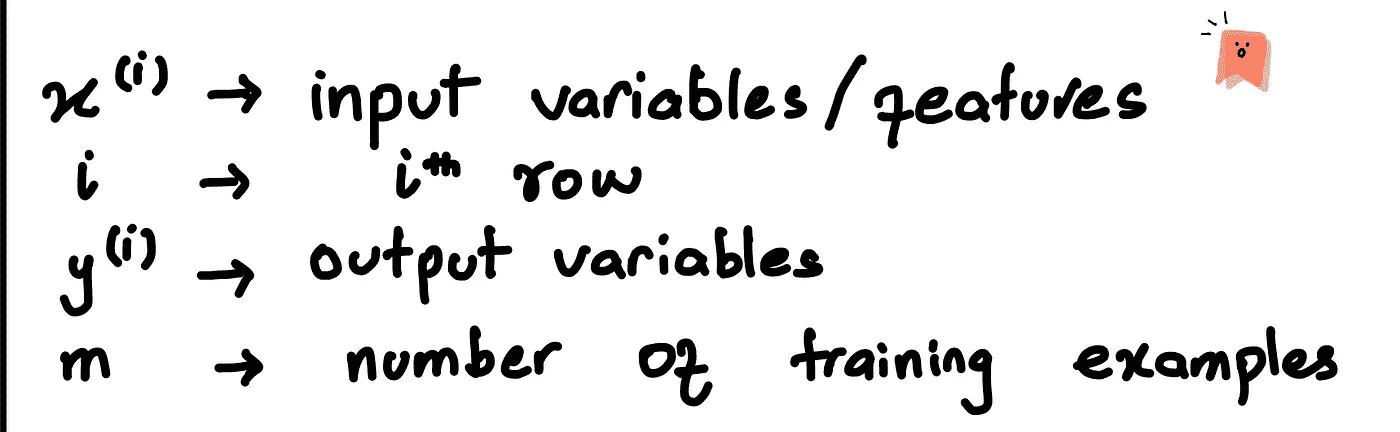 x⁽ⁱ⁾ → input variables/features
i → iᵗʰ row
y⁽ⁱ⁾ → output variables
m → number of training examples